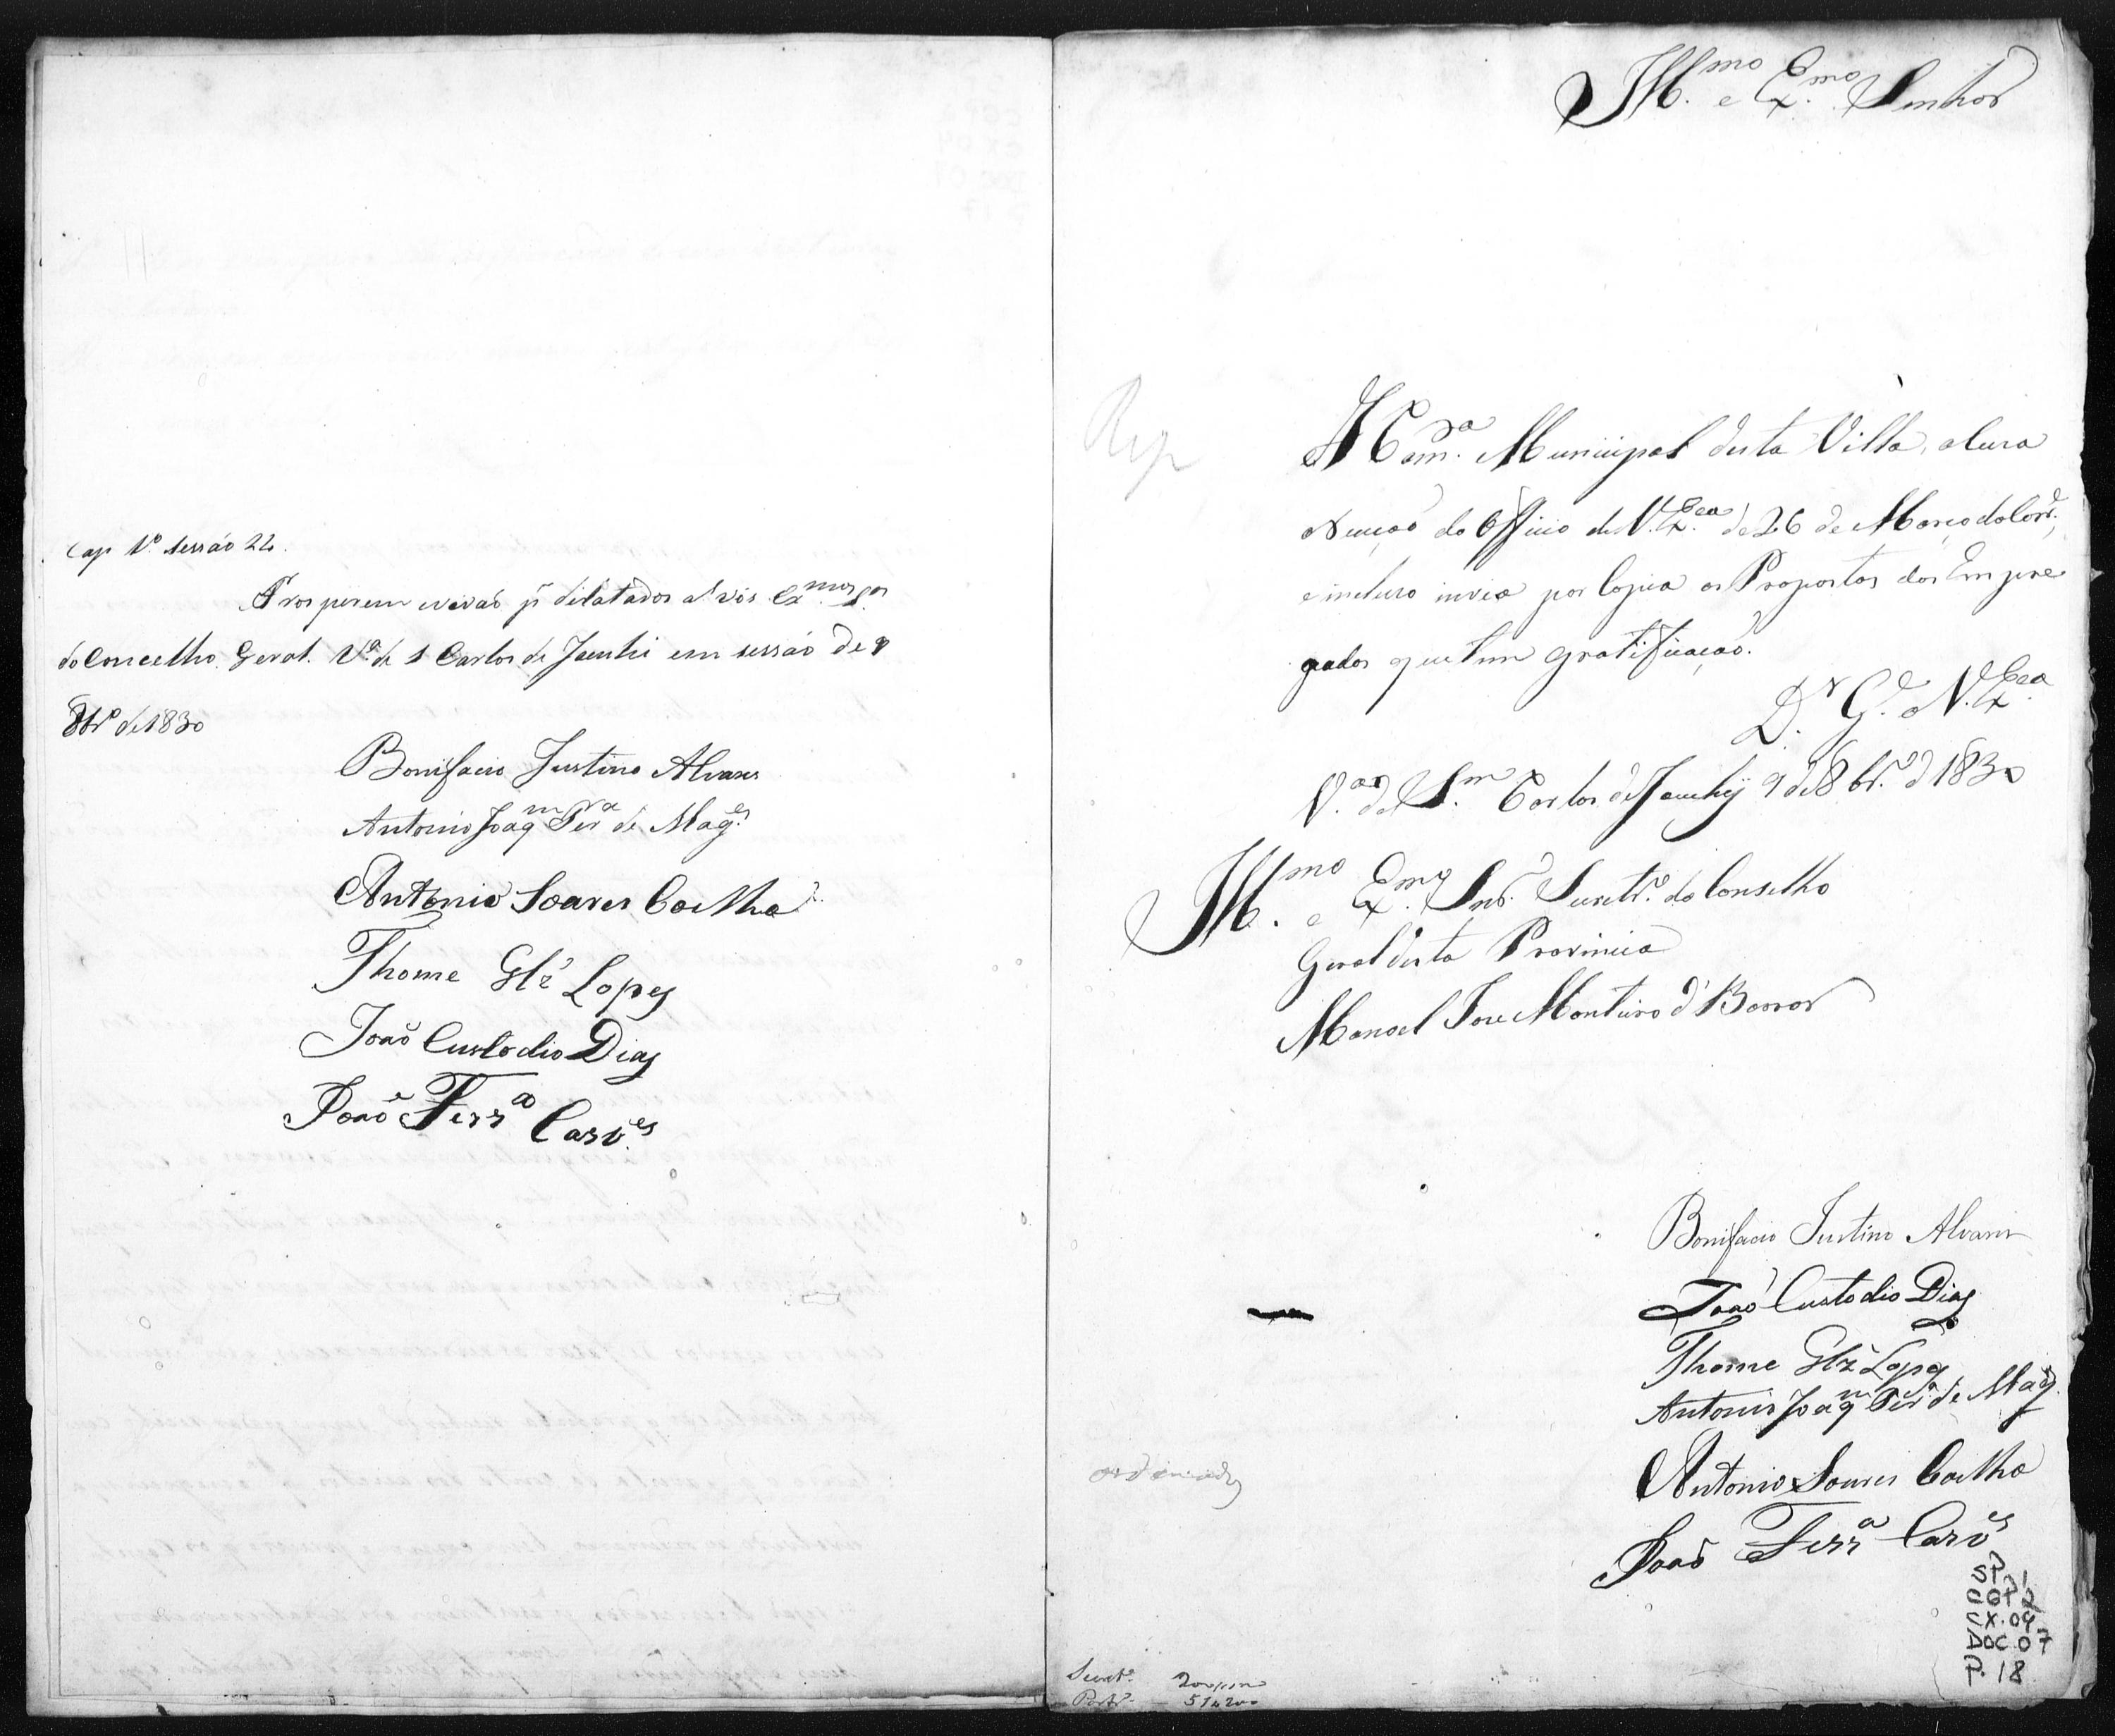 Cap 1º sessão 22.
Prosperem e vivão pr dilatados as vós Exmos Srs
do Concelho Geral. Vª de S Carlos de Jacuhi em sessão de 9
8brº de 1830
Bonifacio Justino Alvares
Antonio Joaqm Perª de Mages
Antonio Soares Coelho
Thome Glz Lopes
João Custodio Dias
João Ferrª Carves
Illmo e Exmo Senhor
Rep
A Camrª Municipal desta Villa, acura
do Officio de V. Excea de 26 de Março do Corre,
e incluso invia por Copia as Propostas dos Empre
gados que tem gratificação.
Ds Ge a V. Excea
Vª de Sm Carlos de Jacuhy 9 de 8brº d 1830
Illmo e Exmo Snr. Secretrº do Conselho
Geral desta Provincia
Manoel Jose Monteiro d'Barros
Bonifacio Justino Alvares
João Custodio Dias
Thome Glz Lopes
Antonio Joaqm Perª de Mages
Antonio Soares Coelho
João Ferrª Carves
ordenados
SP. 1
CGP 2
CX. 04
DOC. 07
P. 18
Secretº
Portrº 51$200